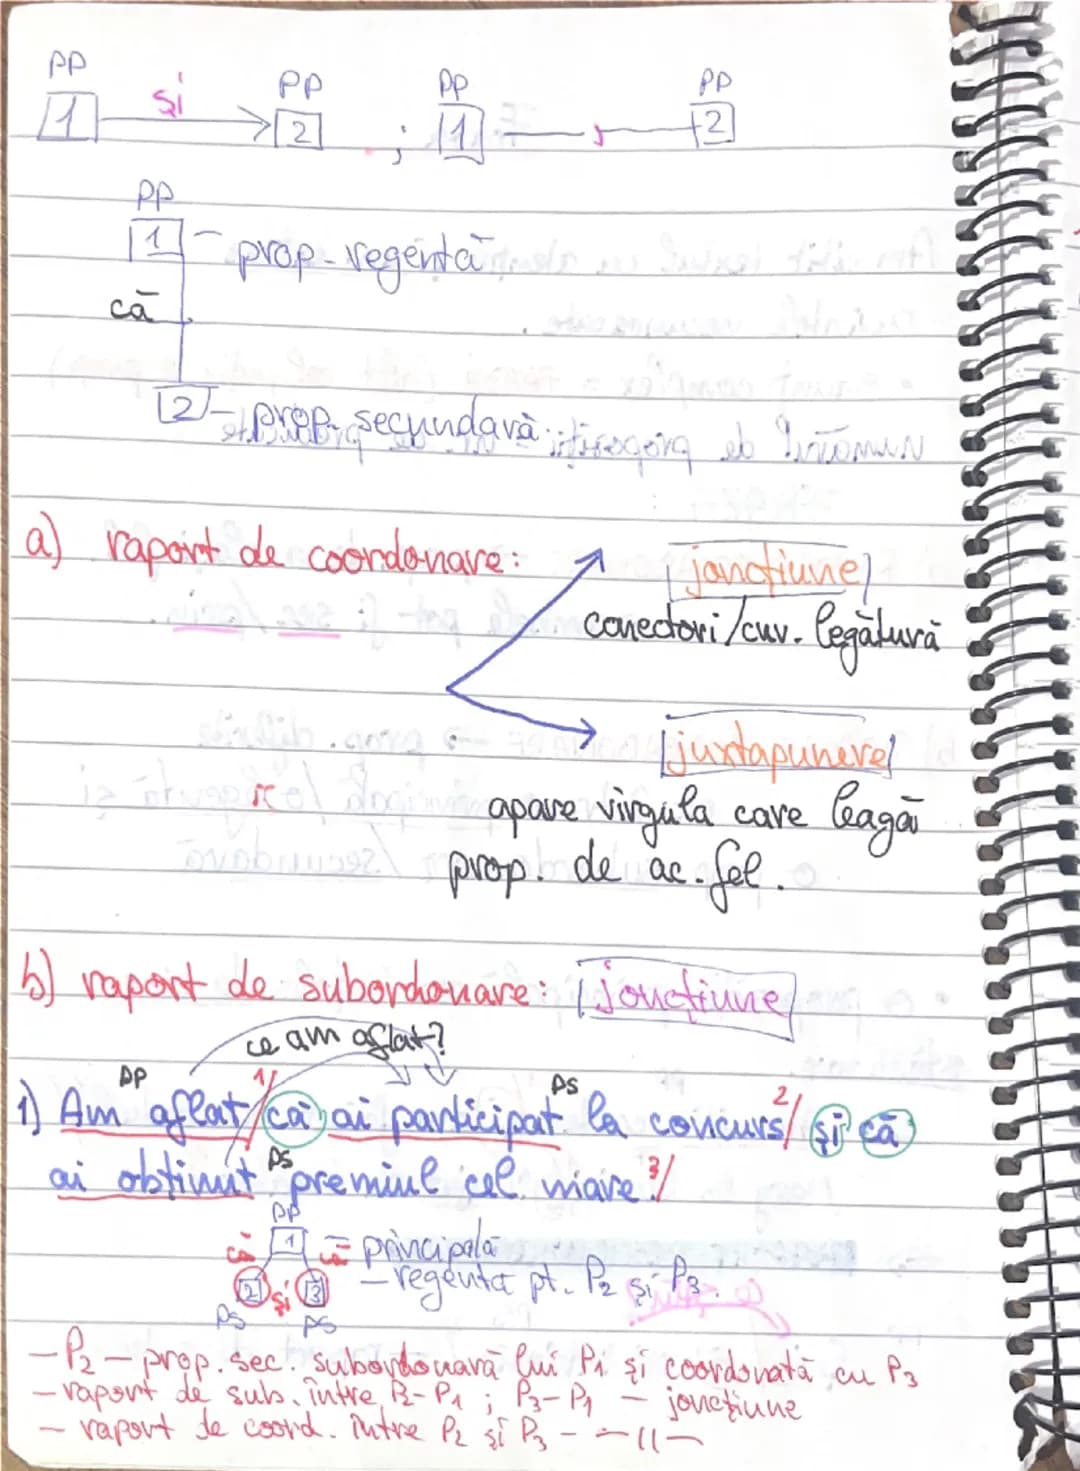 PP și PP ; PP PP
1 2 1 , 2
PP
1 - prop. regentă
că
2 - prop. secundavă
a) raport de coordonare: joncțiune
conectori/cuv. legătură
juxtapunere
apare virgula care leagă
prop. de ac. fel.
b) raport de subordonare: joncțiune
ce am aflat?
PP 1/ PS 2/
1) Am aflat/că ai participat la concurs/și că
PS 3/
ai obținut premiul cel mare!/
PP
că 1 că - principală
2 și 3 - regentă pt. P2 și P3.
PS PS
- P2 - prop. sec. subordonată lui P1 și coordonată cu P3
- raport de sub. între P2-P1 ; P3-P1 - joncțiune
- raport de coord. între P2 și P3 - -11-